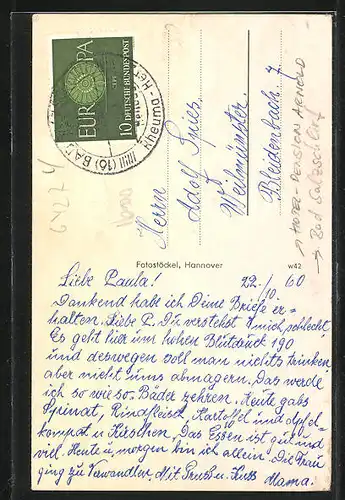 EUROPA
1960
10 DEUTSCHE BUNDESPOST
(16) BAD
Rheuma-
6427 4/
Herrn
Adolf Spies
Weilmünster
Bleidenbach 7
→ HOTEL-PENSION ARNOLD
→ Bad Salzschlirf
Fotostöckel, Hannover
w42
Liebe Paula! 22./10 60
Dankend habe ich Deine Briefe er-
halten. Liebe P. Du verstehst mich schlecht
Es geht hier um hohen Blutdruck 190
und deswegen soll man nichts trinken
aber nicht ums abmagern. Das werde
ich so wie so. Bäder zehren. Heute gabs
Spinat, Rindfleisch, Kartoffel und Apfel-
kompot u Kirschen. Das Essen ist gut und
viel. Heute u. morgen bin ich allein. Die Frau
ging zu Verwandten. Mit Gruss u. Kuss
Mama.